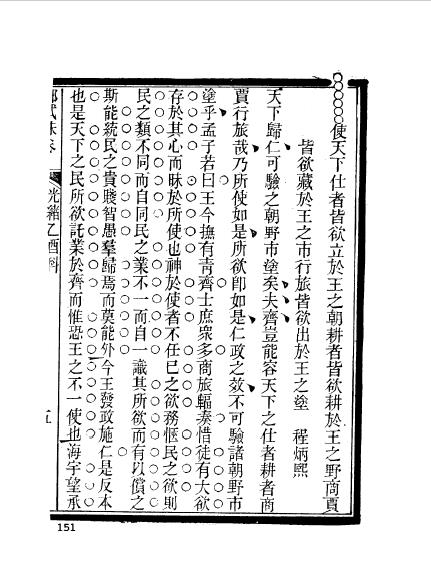 使天下仕者皆欲立於王之朝耕者皆欲耕於王之野商賈
皆欲藏於王之市行旅皆欲出於王之塗 程炳熙
天下歸仁可驗之朝野市塗矣夫齊豈能容天下之仕者耕者商
賈行旅哉乃所使如是所欲卽如是仁政之效不可驗諸朝野市
塗乎孟子若曰王今撫有靑齊士庶衆多商旅輻奏惜徒有大欲
存於其心而昧於所使也神於使者不任巳之欲務愜民之欲則
民之類不同而自同民之業不一而自一識其所欲而有以償之
斯能統民之貴賤智愚羣歸焉而莫能外今王發政施仁是反本
也是天下之民所欲託業於齊而惟恐王之不一使也海宇望承
光緒乙酉科
五
151